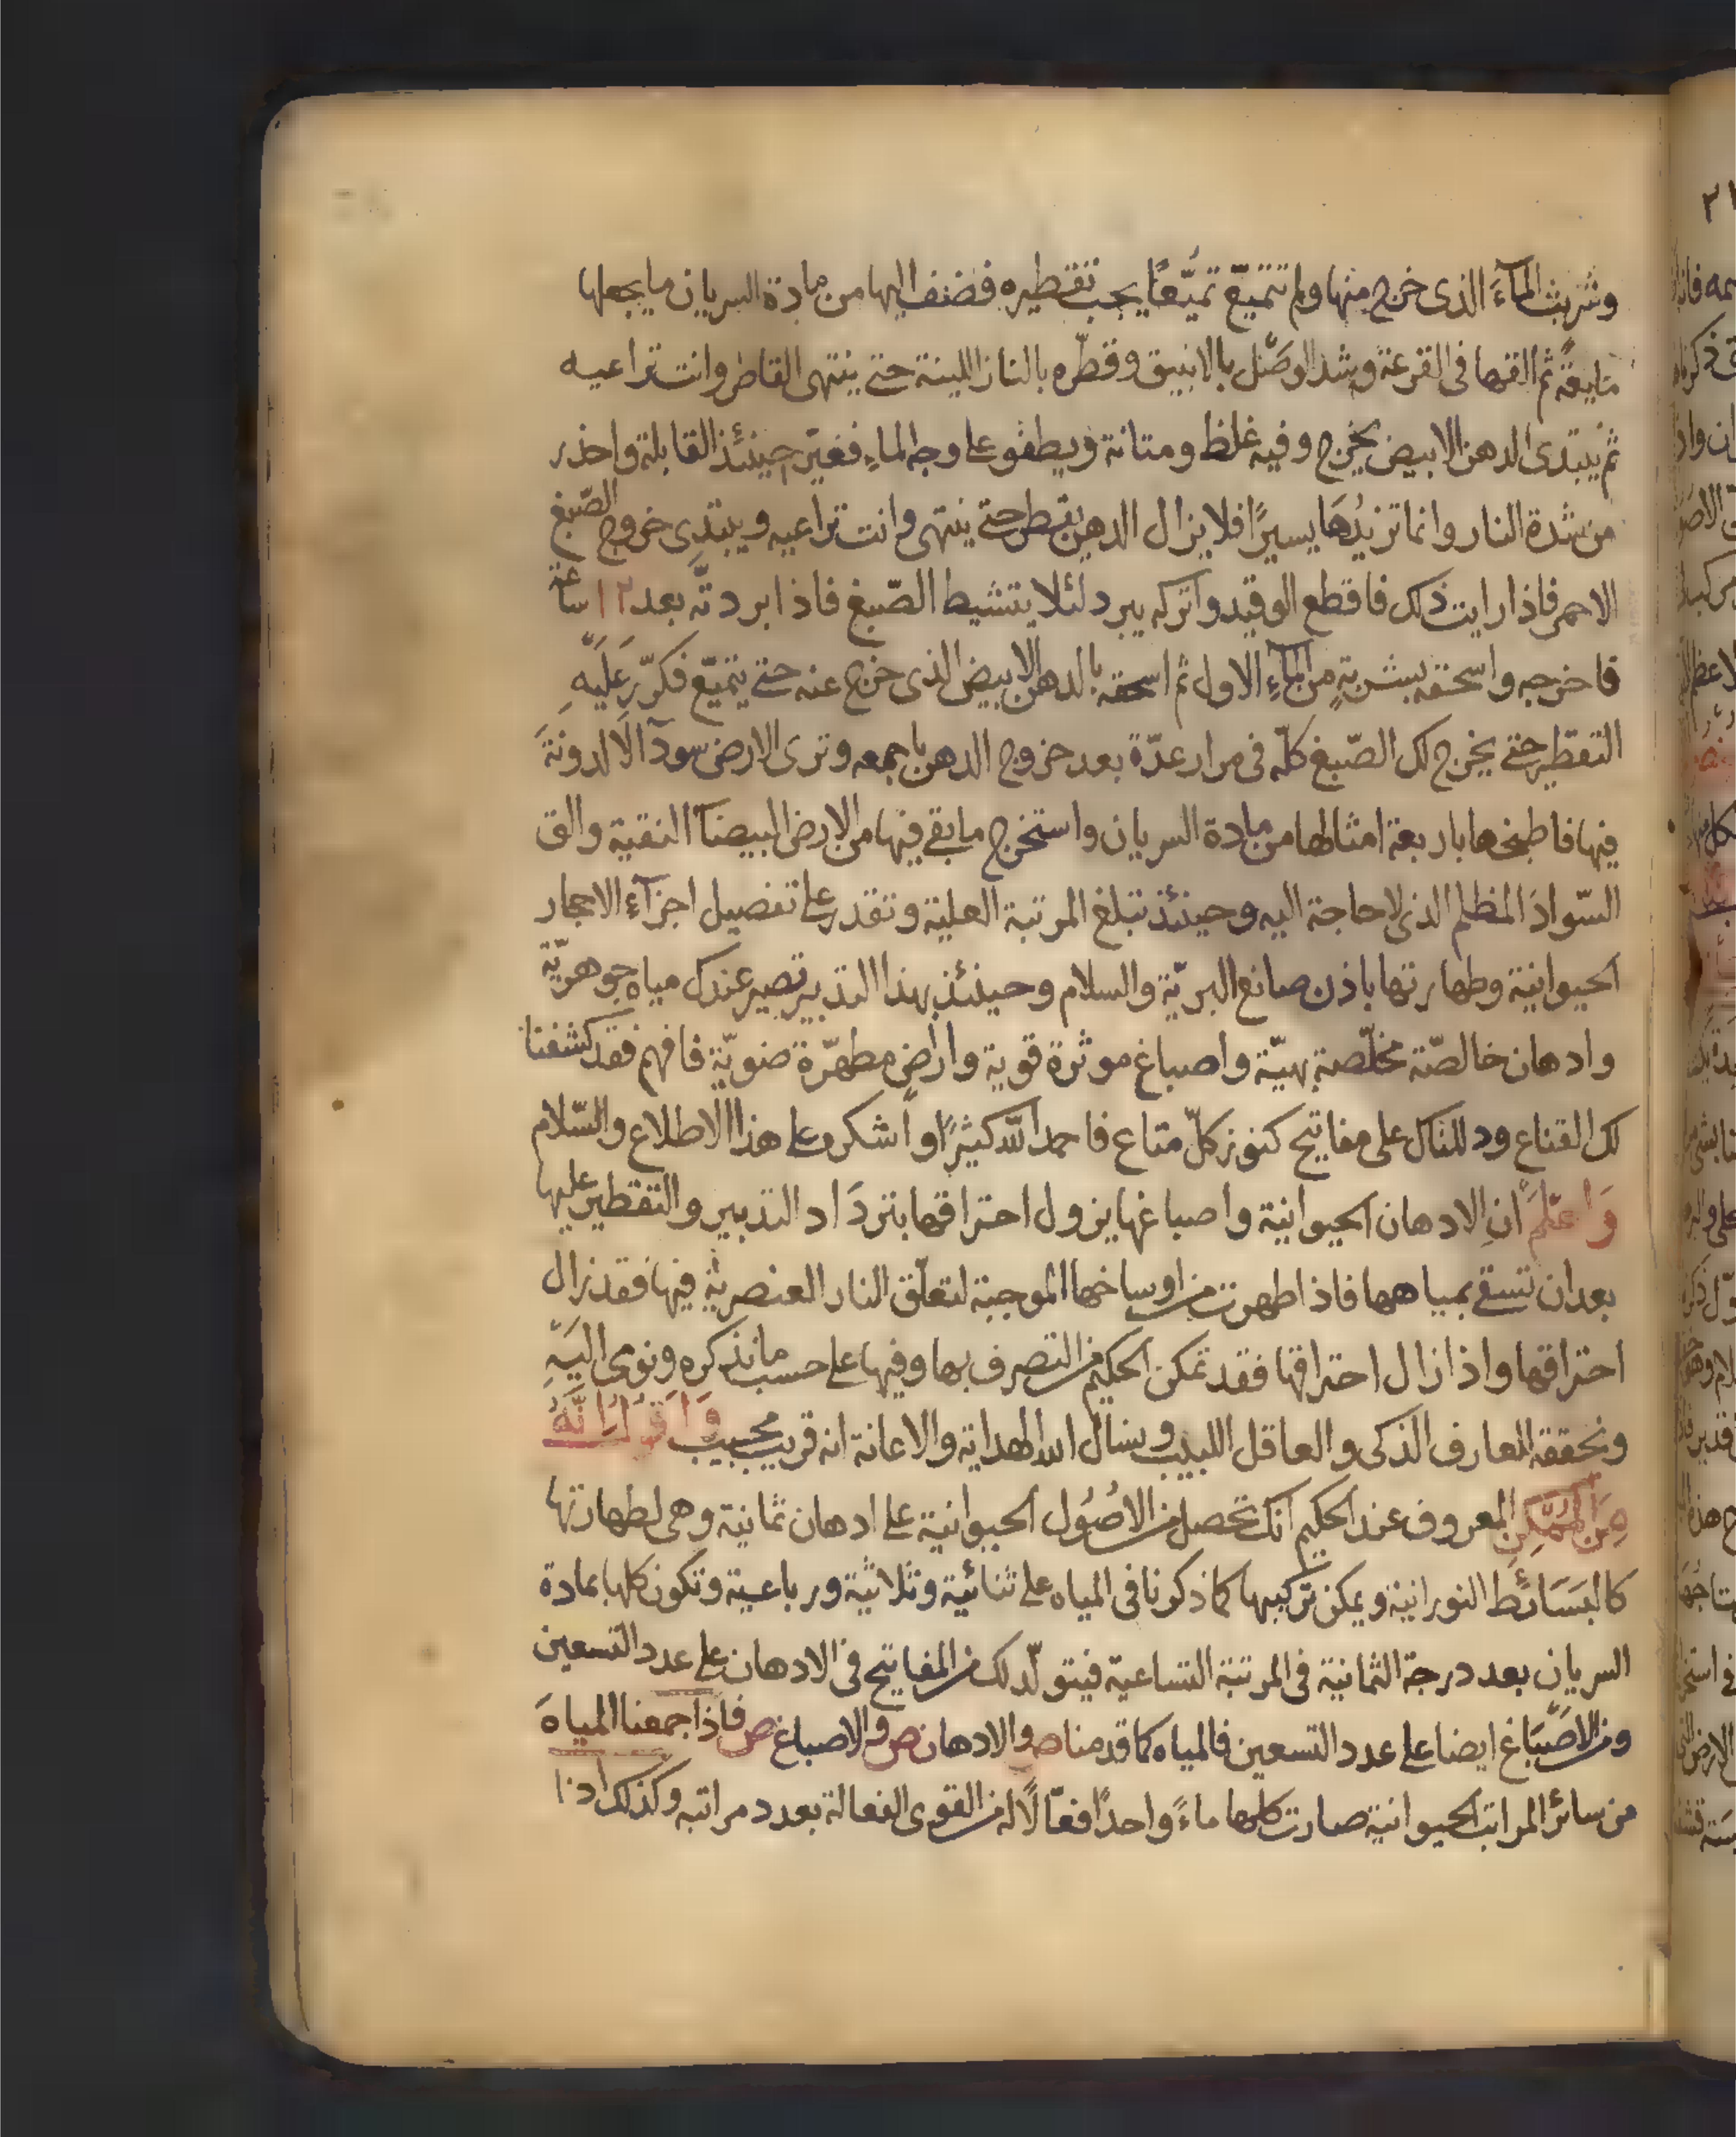 وشربت المآء الذى خرج منها ولم تتميّع تميّعًا يجب تقطيره فضف اليها من مادة السريان ما يجعلها
مايعةً ثم القها فى القرعة وشد الوصَل بالانبيق وقطّره بالنار اللينة حتى ينتهى القاطر وانت تراعيه
ثم يبتدى الدهن الابيض يخرج وفيه غلظ ومتانة ويطفو على وجه الماء فغيّر حينئذ القابلة واحذر
من شدة النار وانما تزيدُهَا يسيرًا فلا يزال الدهن يقطر حتى ينتهى وانت تراعيه ويبتدى خروج الصّبغ
الاحمر فاذا رايت ذلك فاقطع الوقيد واتركه يبرد لئلا يتشيط الصّبغ فاذا بردتّه بعد ١٢ ساعة
فاخرجه واسحقه بشربةٍ من المآءِ الاول ثم اسحقه بالدهن الابيض الذى خرج عنه حتى يتميّع فكرّر عَلَيْهِ
التقطير حتى يخرج لك الصّبغ كلّه فى مرار عدّة بعد خروج الدهن باجمعه وترى الارض سودآ لا لدونةَ
فيها فاطبخها باربعة امثالها من مادة السريان واستخرج ما بقى فيها من الارض البيضآ النقية والق
السّوادَ المظلم الذى لا حاجة اليه وحينئذ تبلغ المرتبة العلية وتقدر على تفصيل اجزآء الاحجار
الحيوانية وطهارتها باذن صانع البريّة والسلام وحينئذ بهذا التدبير تصير عندك مياه جوهريّة
وادهان خالصّة مخلّصة بهيّة واصباغ موثرة قوية واراضٍ مطهّرة ضويّة فافهم فقد كشفنا
لك القناع ودللناك على مفاتيح كنوز كلّ متاع فاحمد اللّه كثيرًا واشكره على هذا الاطلاع والسّلام
وَاعلم انِ الادهان الحيوانية واصباغها يزول احتراقها بتردَاد التدبير والتقطير عليها
بعد ان تسقى بمياهها فاذا طهرت من اوساخها الموجبة لتعلّق النار العنصرية فيها فقد زال
احتراقها واذا زال احتراقها فقد تمكن الحكيم من التصرف بها وفيها على حسب ما نذكره ونومى اليَهِ
ونحققه للعارف الذكى والعاقل اللبيب ونسال الله الهداية والاعانة انه قريب مجيب وَاقول انَّهُ
مِنَ المُمْكِن المعروف عند الحكيم انك تحصل من الاصُول الحيوانية على ادهان ثمانية وهى لطهارتها
كالبَسَائط النورانية ويمكن تركيبها كما ذكرنا فى المياه على ثنائية وثلاثية ورباعية وتكون كلها بمادة
السريان بعد درجة الثمانية فى المرتبة التساعية فيتولّد لك من المفاتيح فى الادهان على عدد التسعين
ومن الاصّبَاغ ايضا على عدد التسعين فالمياه كما قدمنا ص والادهان ص والاصباغ ص فاذا جمعنا المياهَ
من سائر المراتب الحيوانية صارت كلها ماءً واحدًا فعّالًا له من القوى الفعالة بعدد مراتبه وكذلك اذا